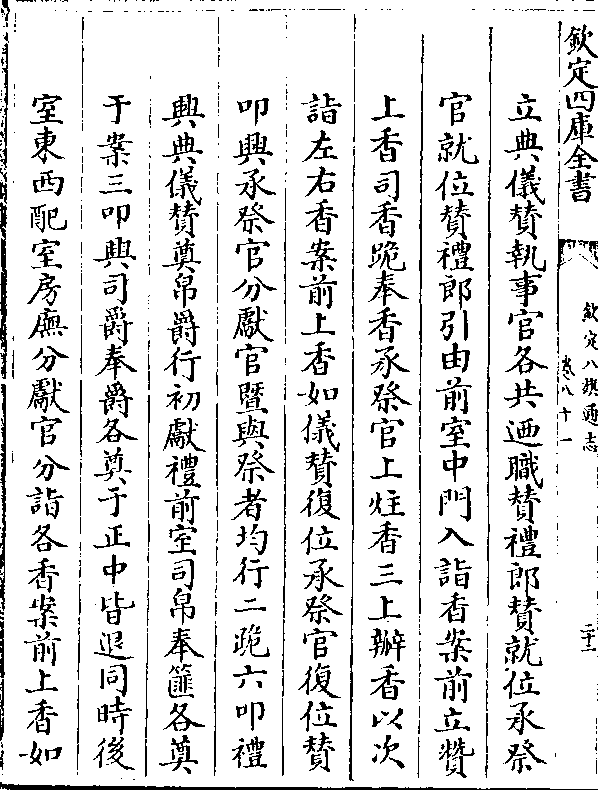 欽定四庫全書
欽定八旗通志
卷八十一
二十二
立典儀贊執事官各共迺職贊禮郎贊就位承祭
官就位贊禮郎引由前室中門入詣香案前立贊
上香司香跪奉香承祭官上炷香三上瓣香以次
詣左右香案前上香如儀贊復位承祭官復位贊
叩興承祭官分獻官暨與祭者均行二跪六叩禮
興典儀贊奠帛爵行初獻禮前室司帛奉篚各奠
于案三叩興司爵奉爵各奠于正中皆退同時後
室東西配室房廡分獻官分詣各香案前上香如